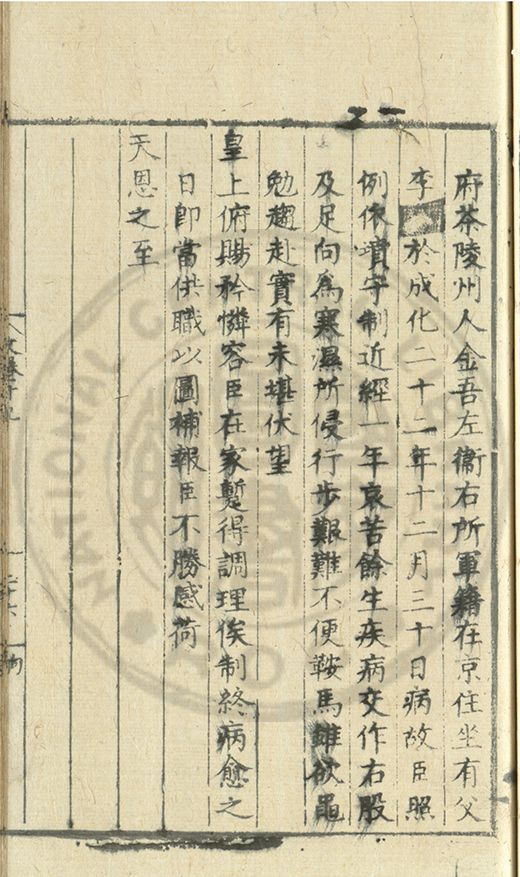 府茶陵州人金吾左衞右所軍籍在京住坐有父
李於成化二十二年十二月三十日病故臣照
例依守制近經一年哀苦餘生疾病交作右股
及足向爲寒濕所侵行步艱難不便鞍馬雖欲黽
勉趨赴實有未堪伏望
皇上俯賜矜憐容臣在家蹔得調理俟制終病愈之
日卽當供職以圖補報臣不勝感荷
天恩之至